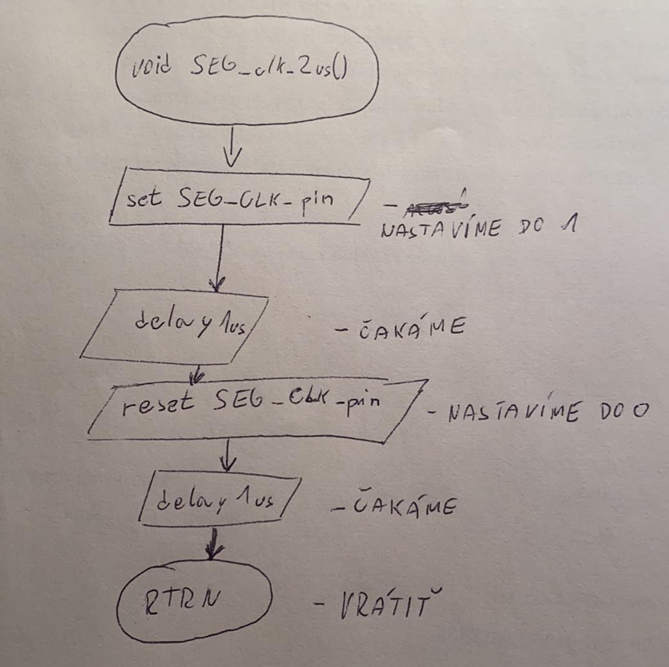 void SEG_clk_2us()
set SEG_CLK_pin
- NASTAVÍME DO 1
delay 1us
- ČAKÁME
reset SEG_CLK_pin
- NASTAVÍME DO 0
delay 1us
- ČAKÁME
RTRN
- VRÁTIŤ